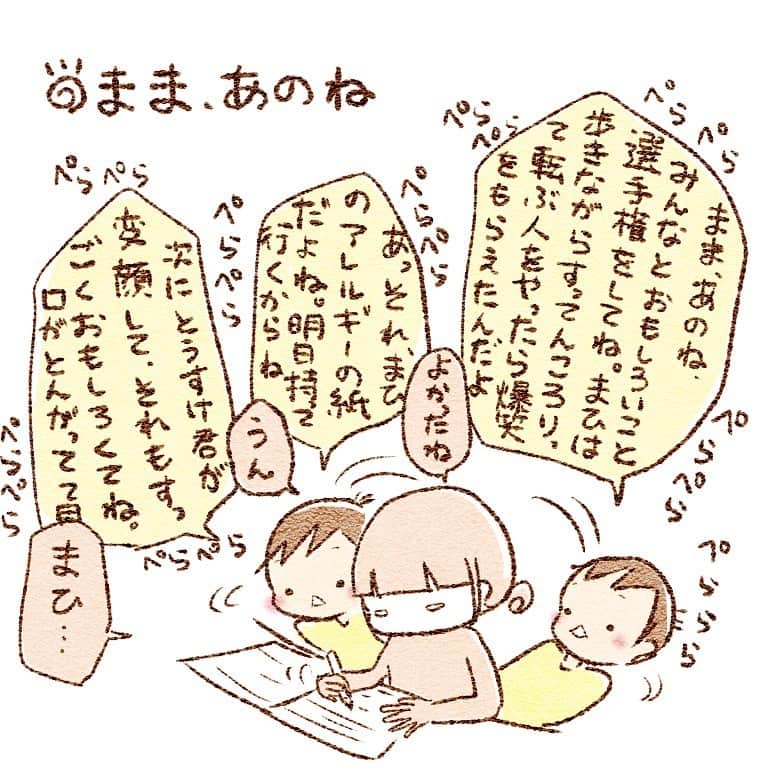 まま、あのね
ぺらぺら
ぺらぺら
まま、あのね、
みんなとおもしろいこと
選手権をしてね。まひは
歩きながらすってんころりっ
て転ぶ人をやったら爆笑
をもらえたんだよ
ぺらぺら
ぺらぺら
よかったね
ぺらぺら
あっそれ、まひ
のアレルギーの紙
だよね。明日持って
行くからね
うん
ぺらぺら
ぺらぺら
次にとうすけ君が
変顔して、それもすっ
ごくおもしろくてね。
口がとんがってて目
ぺらぺら
ぺらぺら
まひ…